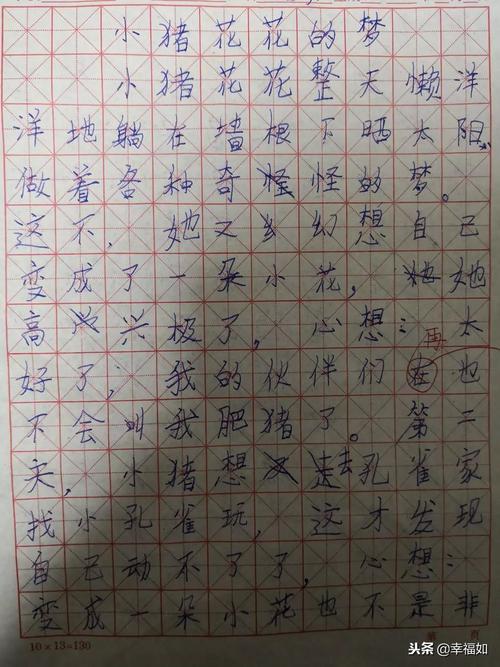 小猪花花的梦
小猪花花整天懒洋
洋地躺在墙根下晒太阳、
做着各种奇怪怪的梦。
这不,她又幻想自己
变成了一朵小花,她她
高兴兴极了,心想:太
再
好了,我的伙伴们在也
不会叫我肥猪了。第二
天,小猪想又走去孔雀家
找小孔雀玩,这才发现
自己动不了了,心想:
变成一朵小花也不是非
10×13=130
第 页
头条 @幸福如